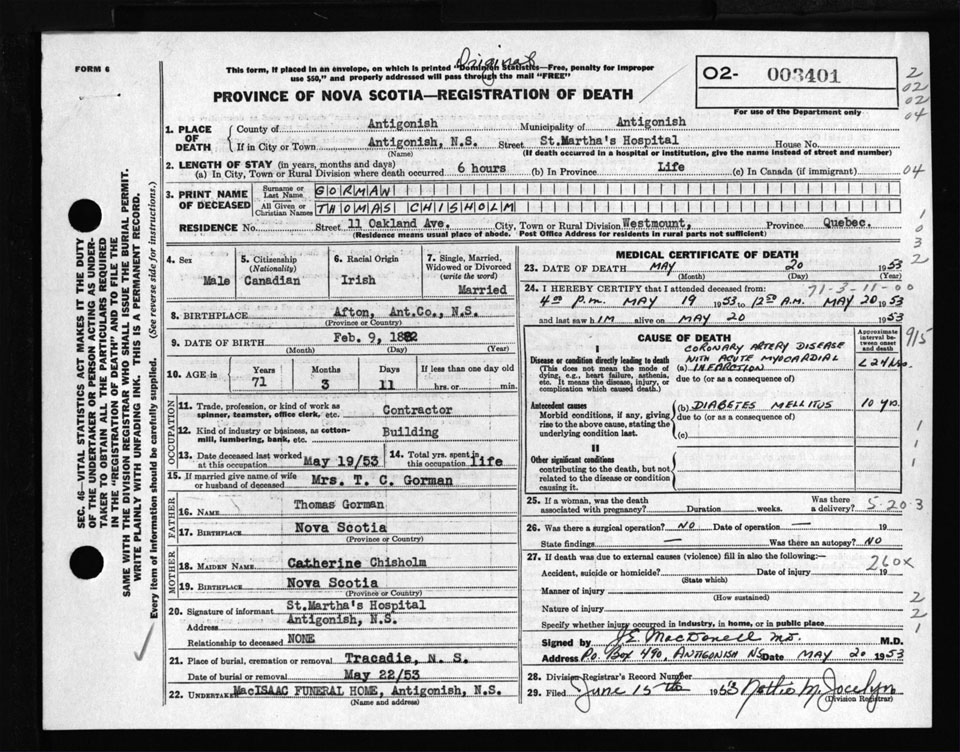 Original
FORM 6
This form, if placed in an envelope, on which is printed "Dominion Statistics—Free, penalty for improper
use $50," and properly addressed will pass through the mail "FREE"
O2- 003401
For use of the Department only
2
02
02
04
PROVINCE OF NOVA SCOTIA—REGISTRATION OF DEATH
1. PLACE OF DEATH
County of Antigonish Municipality of Antigonish
If in City or Town Antigonish, N.S. Street St.Martha's Hospital House No.
(Name) (If death occurred in a hospital or institution, give the name instead of street and number)
2. LENGTH OF STAY (in years, months and days)
(a) In City, Town or Rural Division where death occurred 6 hours (b) In Province Life (c) In Canada (if immigrant) 04
3. PRINT NAME OF DECEASED
Surname or Last Name GORMAN
All Given or Christian Names THOMAS CHISHOLM
RESIDENCE No. Street 11 Oakland Ave. City, Town or Rural Division Westmount, Province Quebec.
(Residence means usual place of abode. Post Office Address for residents in rural parts not sufficient)
1
0
3
2
4. Sex Male
5. Citizenship (Nationality) Canadian
6. Racial Origin Irish
7. Single, Married, Widowed or Divorced (write the word) Married
8. BIRTHPLACE Afton, Ant.Co., N.S.
(Province or Country)
9. DATE OF BIRTH Feb. 9, 1882
(Month) (Day) (Year)
10. AGE in Years 71 Months 3 Days 11 If less than one day old hrs. or min.
OCCUPATION
11. Trade, profession, or kind of work as spinner, teamster, office clerk, etc. Contractor
12. Kind of industry or business, as cotton-mill, lumbering, bank, etc. Building
13. Date deceased last worked at this occupation May 19/53
14. Total yrs. spent in this occupation life
15. If married give name of wife or husband of deceased Mrs. T. C. Gorman
FATHER
16. NAME Thomas Gorman
17. BIRTHPLACE Nova Scotia
(Province or Country)
MOTHER
18. MAIDEN NAME Catherine Chisholm
19. BIRTHPLACE Nova Scotia
(Province or Country)
20. Signature of informant St.Martha's Hospital
Address Antigonish, N.S.
Relationship to deceased NONE
21. Place of burial, cremation or removal Tracadie, N. S.
Date of burial or removal May 22/53
22. UNDERTAKER MacISAAC FUNERAL HOME, Antigonish, N.S.
(Name and address)
MEDICAL CERTIFICATE OF DEATH
23. DATE OF DEATH MAY 20 1953
(Month) (Day) (Year)
24. I HEREBY CERTIFY that I attended deceased from: 71-3-11-00
4 00 P.M. MAY 19 1953 to 12 50 A.M. MAY 20 1953
and last saw hIM alive on MAY 20 1953
CAUSE OF DEATH
Approximate interval between onset and death
915
I
Disease or condition directly leading to death
(This does not mean the mode of dying, e.g., heart failure, asthenia, etc. It means the disease, injury, or complication which caused death.)
CORONARY ARTERY DISEASE
WITH ACUTE MYOCARDIAL
(a) INFARCTION
due to (or as a consequence of)
Antecedent causes
Morbid conditions, if any, giving rise to the above cause, stating the underlying condition last.
(b) DIABETES MELLITUS 10 yrs.
due to (or as a consequence of)
(c)
1
1
1
II
Other significant conditions
contributing to the death, but not related to the disease or condition causing it.
25. If a woman, was the death associated with pregnancy? Duration weeks. Was there a delivery? 5-20-3
26. Was there a surgical operation? NO Date of operation — 19
State findings — Was there an autopsy? NO
27. If death was due to external causes (violence) fill in also the following:—
260x
Accident, suicide or homicide? Date of injury 19
(State which)
Manner of injury
(How sustained)
2
Nature of injury
2
Specify whether injury occurred in industry, in home, or in public place
1
Signed by J.E. MacDonell MD. M.D.
Address P.O. Box 490, ANTIGONISH NS Date MAY 20 1953
28. Division Registrar's Record Number
29. Filed June 15th 1953 Nettie M. Jocelyn
(Division Registrar)
SEC. 46—VITAL STATISTICS ACT MAKES IT THE DUTY
OF THE UNDERTAKER OR PERSON ACTING AS UNDER-
TAKER TO OBTAIN ALL THE PARTICULARS REQUIRED
IN THE "REGISTRATION OF DEATH" AND TO FILE THE
SAME WITH THE DIVISION REGISTRAR WHO SHALL ISSUE THE BURIAL PERMIT.
WRITE PLAINLY WITH UNFADING INK. THIS IS A PERMANENT RECORD.
Every item of information should be carefully supplied. (See reverse side for instructions.)